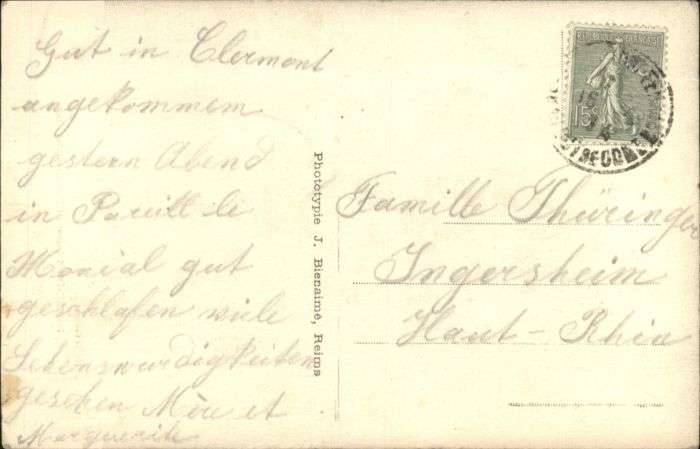 Gut in Clermont
angekommem
gestern Abend
in Parai le
Monial gut
geschlafen viele
Sehenswurdigkeiten
gesehen Mère et
Marguerite
Phototypie J. Bienaimé, Reims
REPUBLIQUE FRANÇAISE
15c
Famille Thüringer
Ingersheim
Haut-Rhin